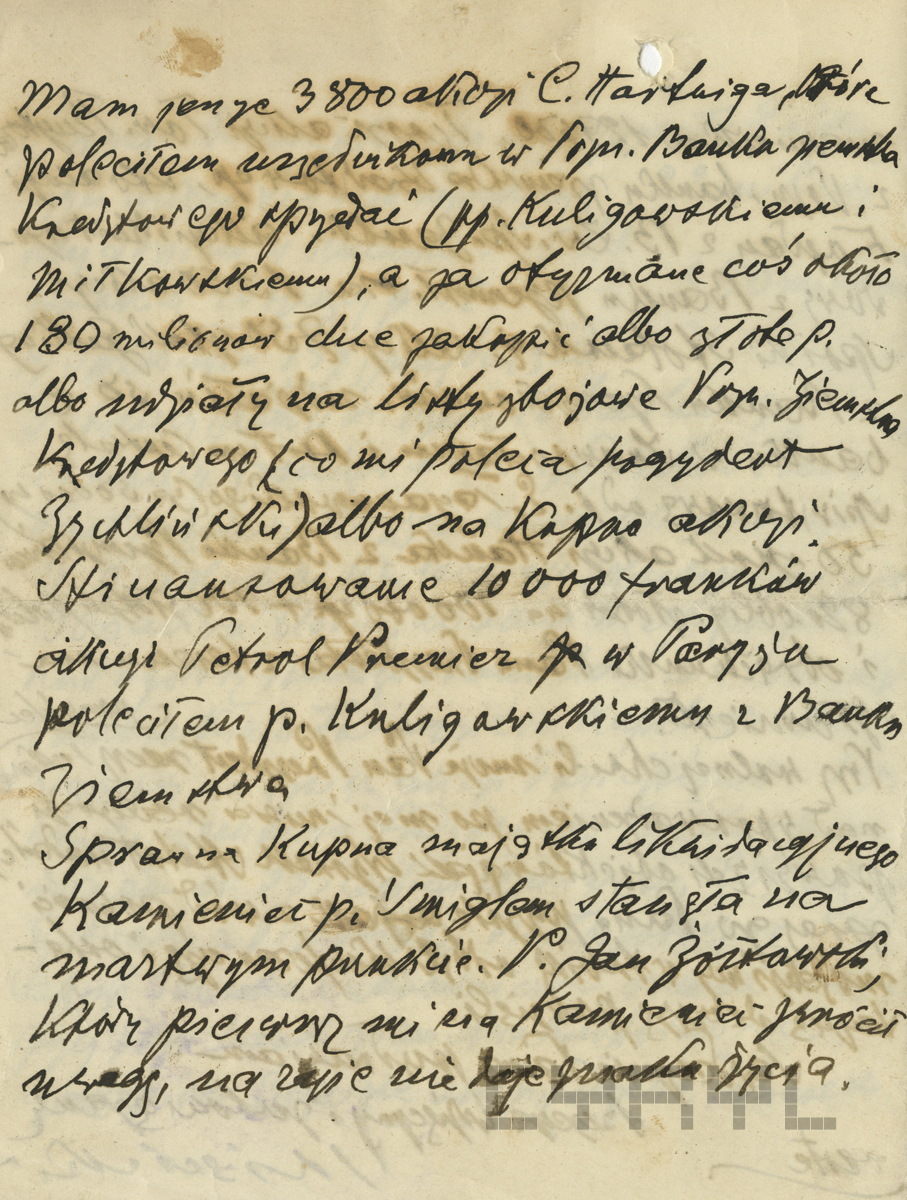 Mam jeszcze 3800 akcyi C. Hartwiga, które
poleciłem urzędnikom w Pozn. Banku
Kredytowego spzedać (pp. Kuligowskiemu i
Miłkowskiemu), a za otrzymane coś około
180 milionów chce zakupić albo złote p.
albo udziały na listy zbożowe Pozn. Ziemstwa
Kredytowego (co mi poleca prezydent
Żychliński) albo na kupno akcyi.
Sfinansowanie 10 000 franków
akcyi Petrol Premier w Paryżu
poleciłem p. Kuligowskiemu z Banku
Ziemstwa
Sprawa kupna majątku likwidacyjnego
Kamieniec p. Śmiglem stanęła na
martwym punkcie. P. Jan Żółtowski,
który pierwszy mi na Kamieniec zwrócił
uwagę, na razie nie daje znaku życia.